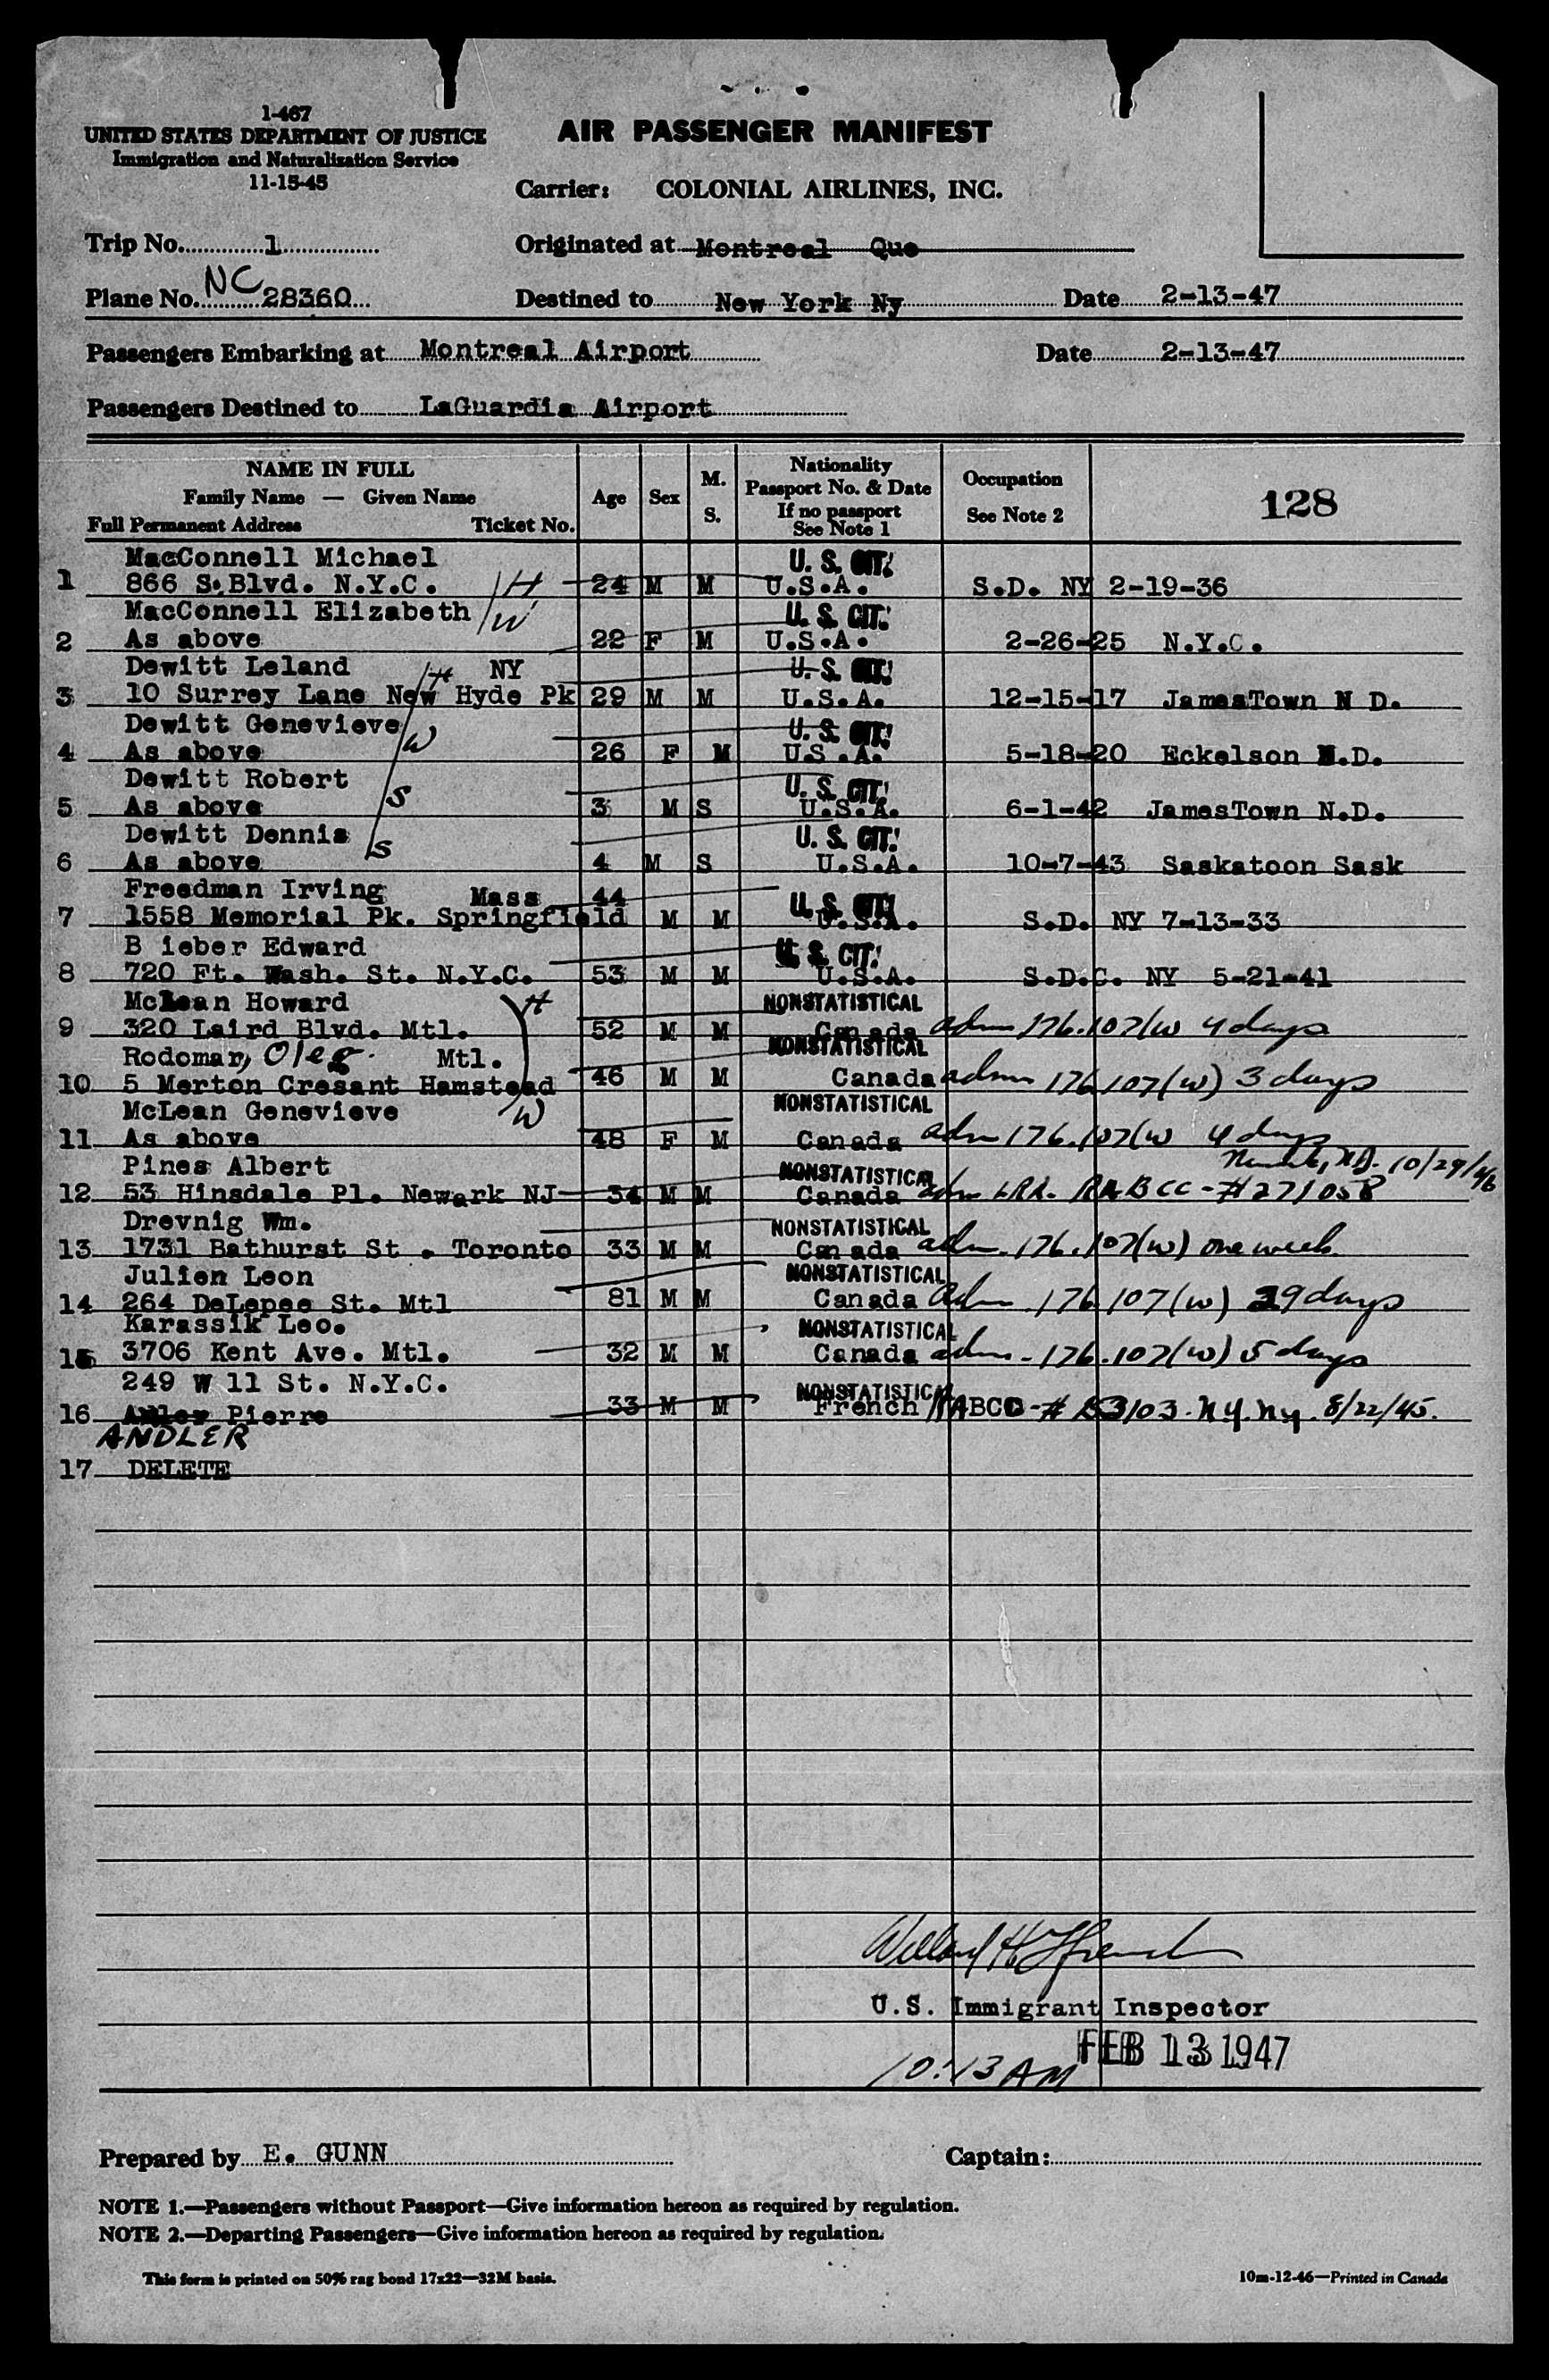 1-467
UNITED STATES DEPARTMENT OF JUSTICE
Immigration and Naturalization Service
11-15-45
AIR PASSENGER MANIFEST
Carrier: COLONIAL AIRLINES, INC.
Trip No. 1
Originated at Montreal Que
Plane No. NC 28360
Destined to New York Ny Date 2-13-47
Passengers Embarking at Montreal Airport Date 2-13-47
Passengers Destined to LaGuardia Airport
NAME IN FULL
Family Name — Given Name
Full Permanent Address Ticket No.
Age Sex M. S.
Nationality
Passport No. & Date
If no passport
See Note 1
Occupation
See Note 2
128
MacConnell Michael U. S. CIT.
1 866 S. Blvd. N.Y.C. H 24 M M U.S.A. S.D. NY 2-19-36
MacConnell Elizabeth W U. S. CIT.
2 As above 22 F M U.S.A. 2-26-25 N.Y.C.
Dewitt Leland H NY U. S. CIT.
3 10 Surrey Lane New Hyde Pk 29 M M U.S.A. 12-15-17 JamesTown N D.
Dewitt Genevieve W U. S. CIT.
4 As above 26 F M U.S.A. 5-18-20 Eckelson N.D.
Dewitt Robert S U. S. CIT.
5 As above 3 M S U.S.A. 6-1-42 JamesTown N.D.
Dewitt Dennis S U. S. CIT.
6 As above 4 M S U.S.A. 10-7-43 Saskatoon Sask
Freedman Irving Mass 44 U. S. CIT.
7 1558 Memorial Pk. Springfield M M U.S.A. S.D. NY 7-13-33
B ieber Edward U. S. CIT.
8 720 Ft. Wash. St. N.Y.C. 53 M M U.S.A. S.D.C. NY 5-21-41
McLean Howard H NONSTATISTICAL
9 320 Laird Blvd. Mtl. 52 M M Canada adm 176.107(w 4 days
Rodomar, Oleg. Mtl. NONSTATISTICAL
10 5 Merton Cresant Hamstead 46 M M Canada adm 176 107(w) 3 days
McLean Genevieve W NONSTATISTICAL
11 As above 48 F M Canada adm 176.107(w 4 days
Pines Albert NONSTATISTICAL 10/29/46
12 53 Hinsdale Pl. Newark NJ 34 M M Canada adm RABCC-#271058
Drevnig Wm. NONSTATISTICAL
13 1731 Bathurst St . Toronto 33 M M Canada adm. 176.107(w) one week
Julien Leon NONSTATISTICAL
14 264 DeLepee St. Mtl 81 M M Canada adm. 176 107(w) 29 days
Karassik Leo. NONSTATISTICAL
15 3706 Kent Ave. Mtl. 32 M M Canada adm. 176.107(w) 5 days
249 W 11 St. N.Y.C. NONSTATISTICAL
16 Pierre 33 M M French RABCC-# 53103. N.Y. N.Y. 8/22/45.
ANDLER
17 DELETE
U.S. Immigrant Inspector
FEB 13 1947
10:13 AM
Prepared by E. GUNN Captain:
NOTE 1.—Passengers without Passport—Give information hereon as required by regulation.
NOTE 2.—Departing Passengers—Give information hereon as required by regulation.
This form is printed on 50% rag bond 17x22—32M basis. 10m-12-46—Printed in Canada